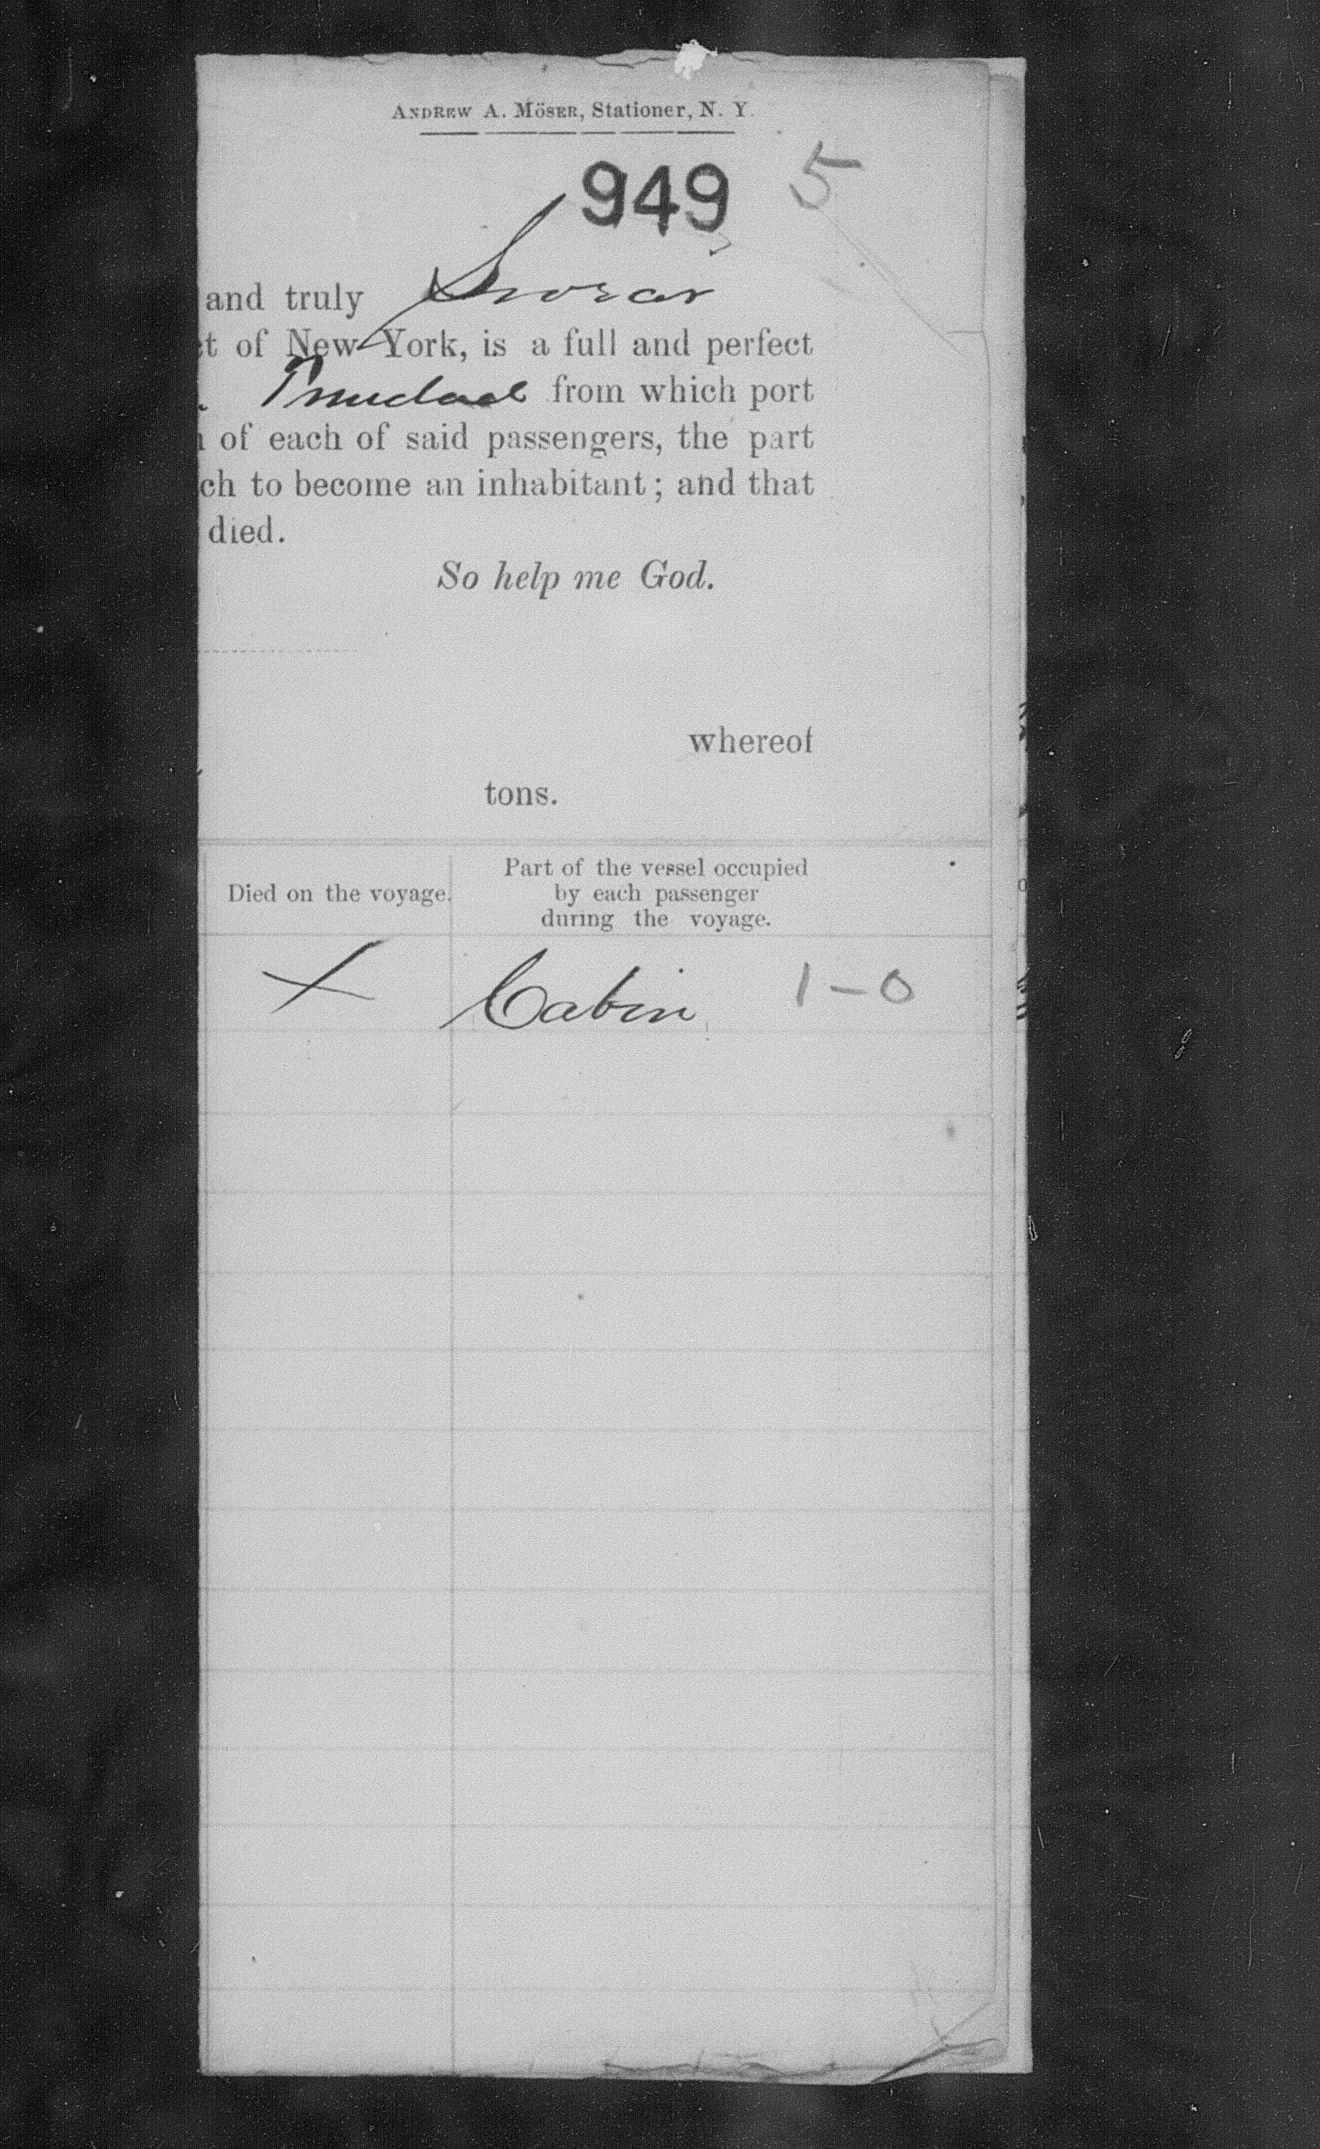 ANDREW A. MÖSER, Stationer, N. Y.
949 5
and truly Swear
t of New York, is a full and perfect
Trinidad from which port
of each of said passengers, the part
ch to become an inhabitant; and that
died.
So help me God.
whereof
tons.
Died on the voyage. Part of the vessel occupied
by each passenger
during the voyage.
X Cabin 1-0